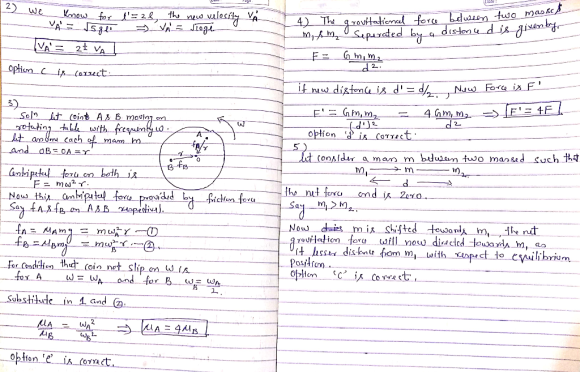 2) We know for l' = 2l, the new velocity V_A'
V_A' = √5gl' ⇒ V_A' = √10gl
V_A' = 2^½ V_A
Option C is correct.
3)
Solⁿ let coins A & B moving on
rotating table with frequency ω.
let assume each of mass m
and OB = OA = r
A
r
f_A
O
r
B
f_B
ω
Centripetal force on both is
F = mω²r.
Now this centripetal force provided by friction force
Say f_A & f_B on A & B respectively.
f_A = μ_A mg = mω_A² r — ①
f_B = μ_B mg = mω_B² r — ②
For condition that coin not slip on ω is
for A ω = ω_A and for B ω_B = ω_A/2
Substitute in 1 and ②.
μ_A/μ_B = ω_A²/ω_B² ⇒ μ_A = 4μ_B
Option 'c' is correct.
4) The gravitational force between two masses
m₁ & m₂ Separated by a distance d is given by.
F = G m₁ m₂ / d².
if new distance is d' = d/2, New Force is F'
F' = Gm₁m₂ / (d')² = 4Gm₁m₂ / d² ⇒ F' = 4F
Option 'd' is correct.
5)
let consider a mass m between two massed such that
m₁ → m — m₂
d
the net force and is zero.
Say m₁ > m₂
Now is shifted towards m₁, the net
gravitation force will now directed towards m₁ as
it lesser distance from m₁ with respect to equilibrium
Position.
Option 'c' is correct.